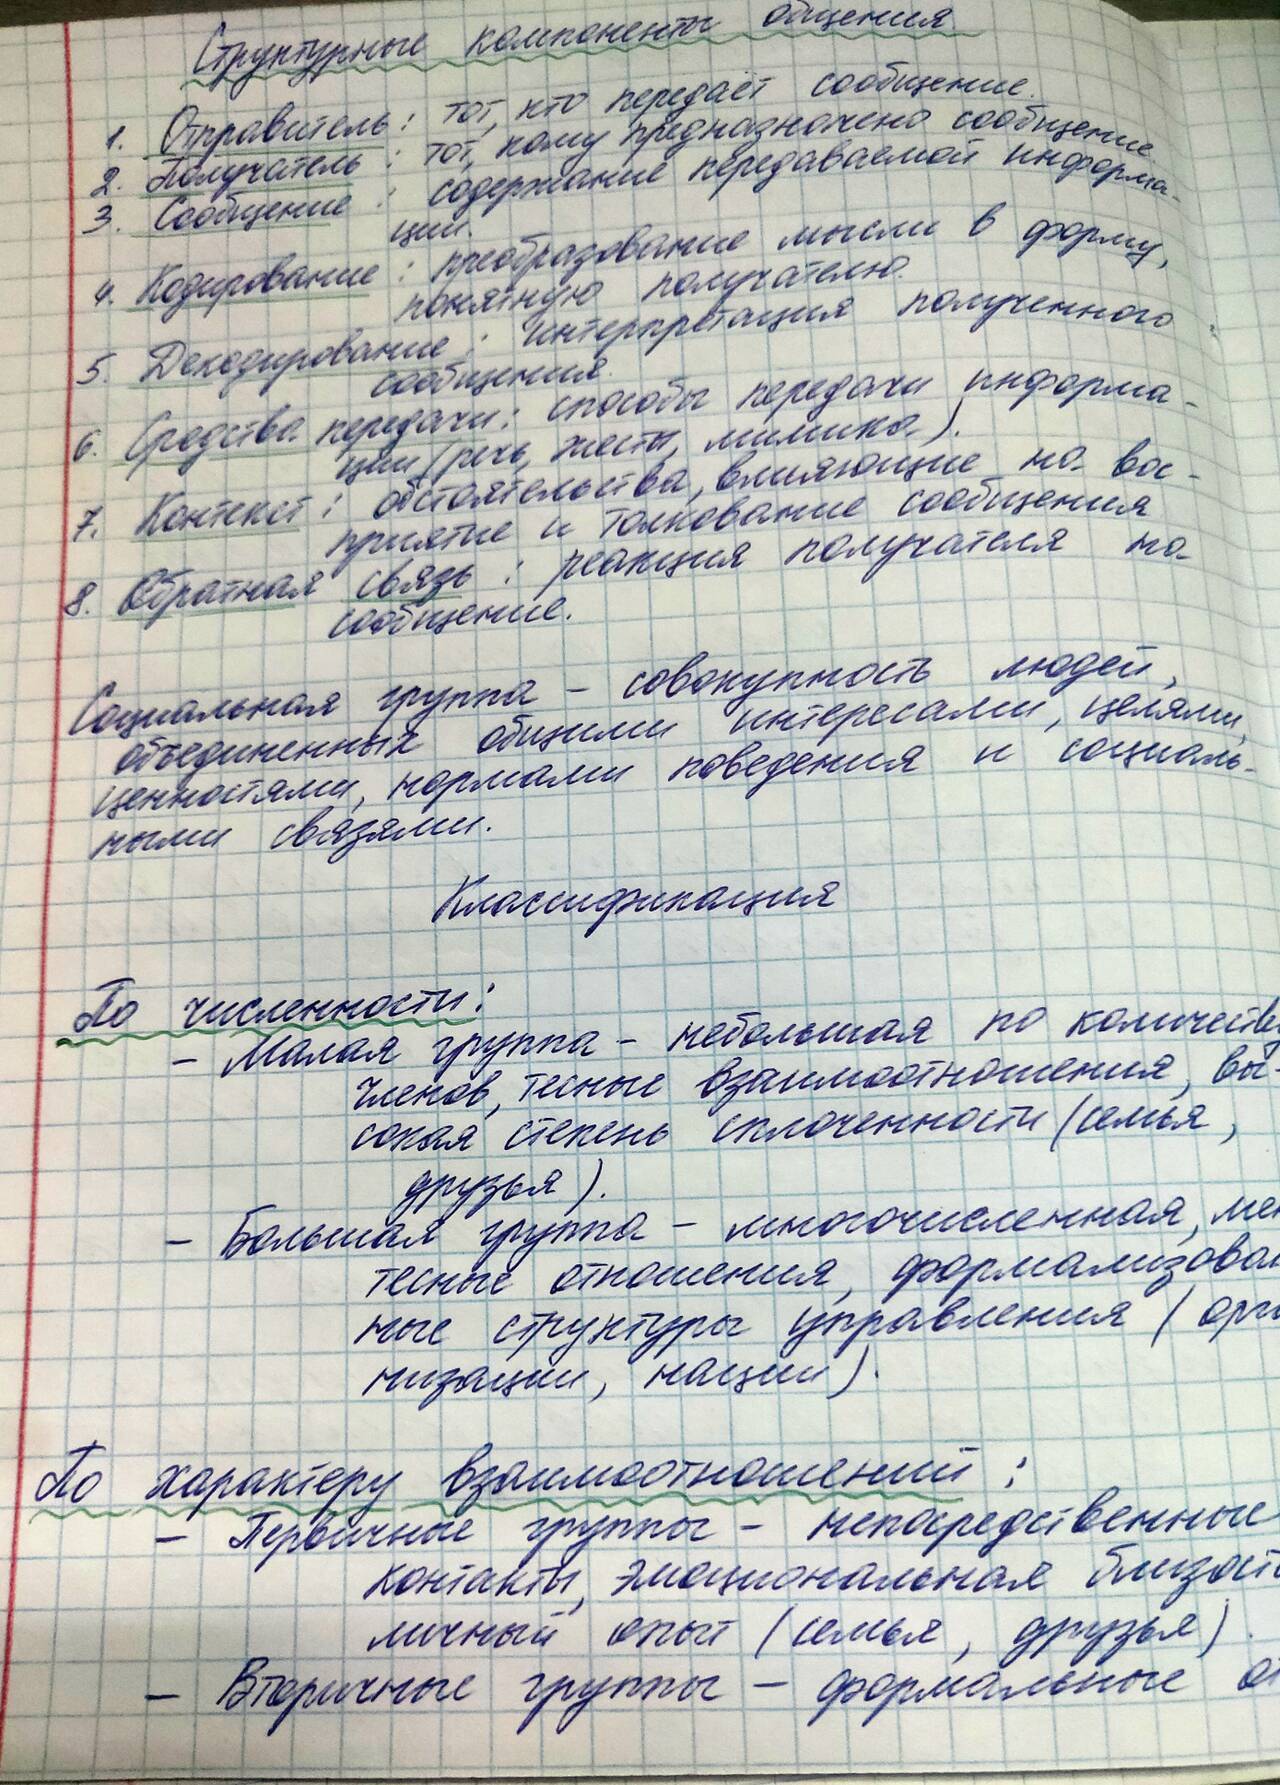 Структурные компоненты общения
1. Отправитель: тот, кто передаёт сообщение.
2. Получатель: тот, кому предназначено сообщение
3. Сообщение: содержание передаваемой информа-
ции.
4. Кодирование: преобразование мысли в форму,
понятную получателю.
5. Декодирование: интерпретация полученного
сообщения.
6. Средства передачи: способы передачи информа-
ции (речь, жесты, мимика).
7. Контекст: обстоятельства, влияющие на вос-
приятие и толкование сообщения
8. Обратная связь: реакция получателя на
сообщение.
Социальная группа - совокупность людей,
объединенных общими интересами, целями,
ценностями, нормами поведения и социаль-
ными связями.
Классификация
По численности:
- Малая группа - небольшая по количеству
членов, тесные взаимоотношения, вы-
сокая степень сплоченности (семья,
друзья).
- Большая группа - многочисленная, мен
тесные отношения, формализован
ные структуры управления (орга
низации, нации).
По характеру взаимоотношений:
- Первичные группы - непосредственные
контакты, эмоциональная близост
личный опыт (семья, друзья).
- Вторичные группы - формальные от